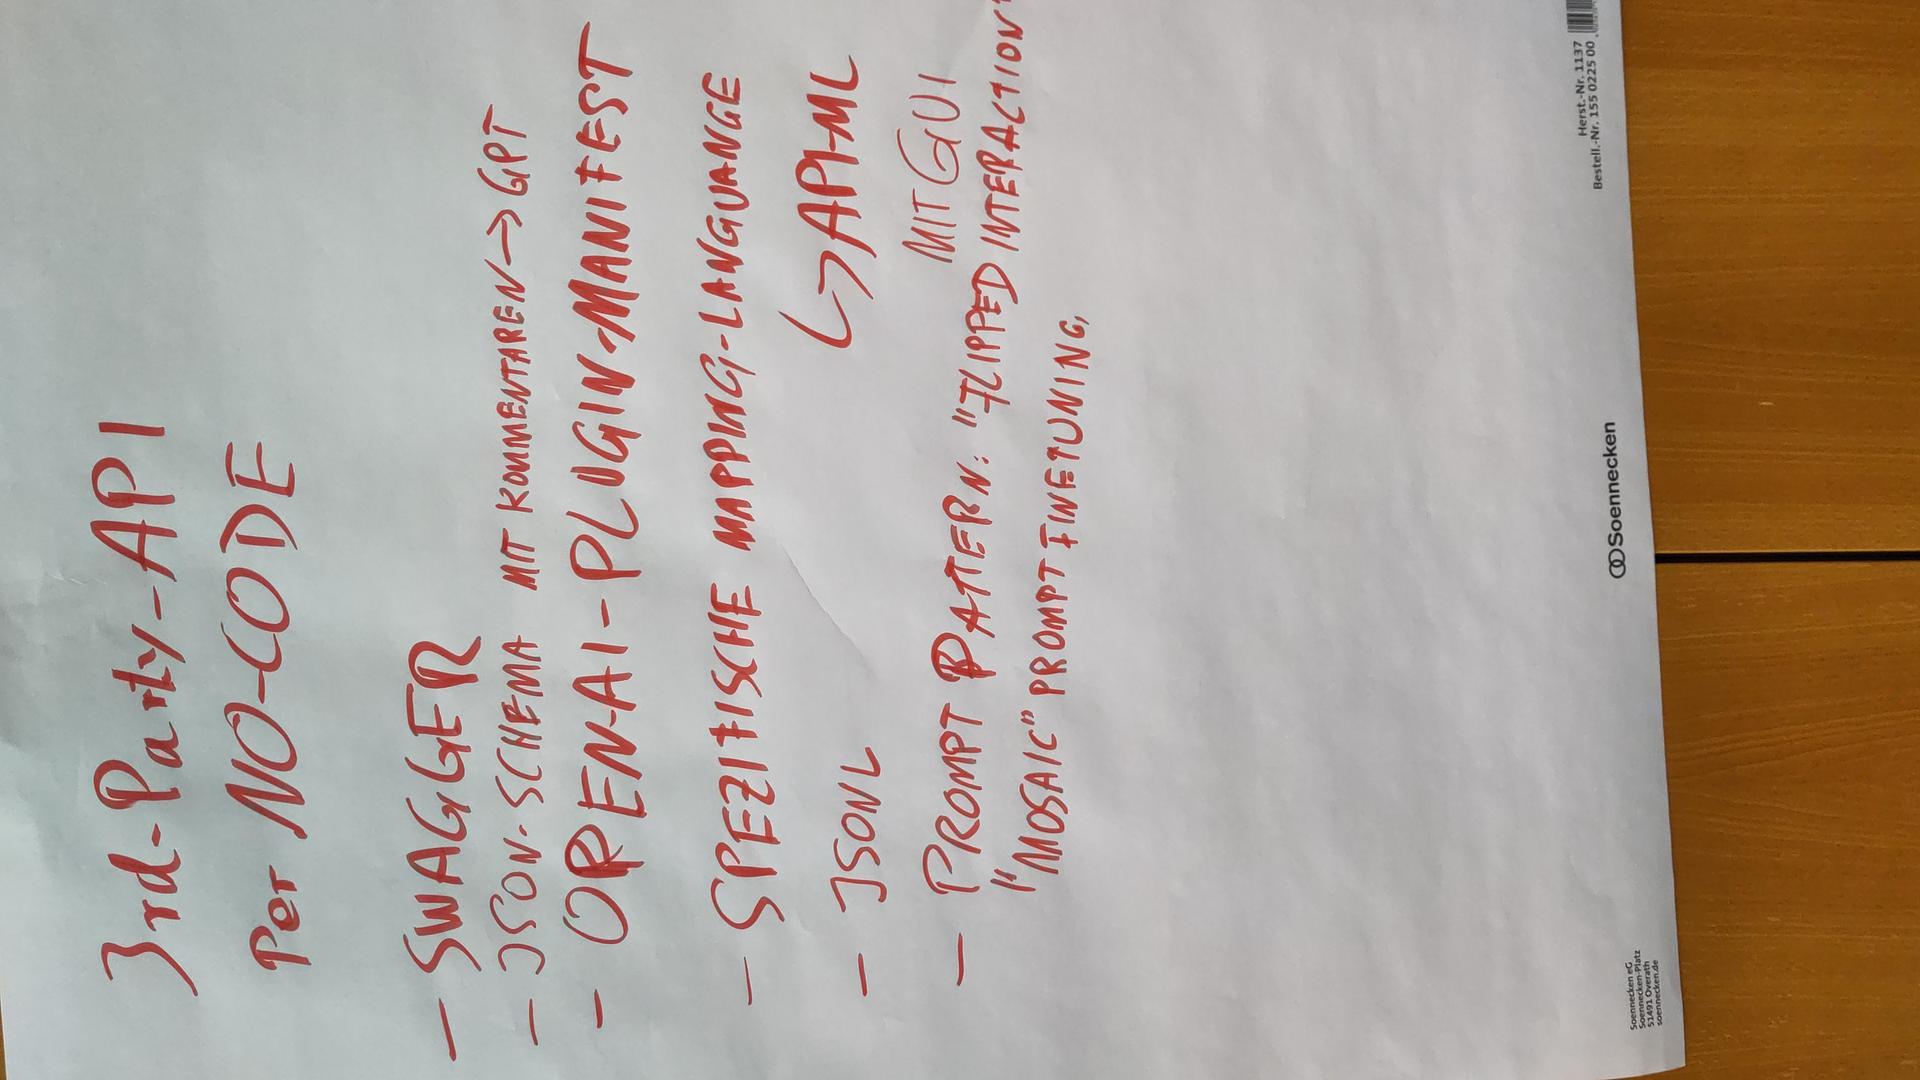 3rd-Party-API
Per NO-CODE
- SWAGGER
- JSON-SCHEMA MIT KOMMENTAREN -> GPT
- OPENAI-PLUGIN-MANIFEST
- SPEZIFISCHE MAPPING-LANGUANGE
↳ API-ML
- JSONL
MIT GUI
- PROMPT PATTERN: "FLIPPED INTERACTION"
"MOSAIC" PROMPT FINETUNING,
Herst.-Nr. 1137
Bestell.-Nr. 155 0225 00
Soennecken
Soennecken eG
Soennecken-Platz
51491 Overath
soennecken.de